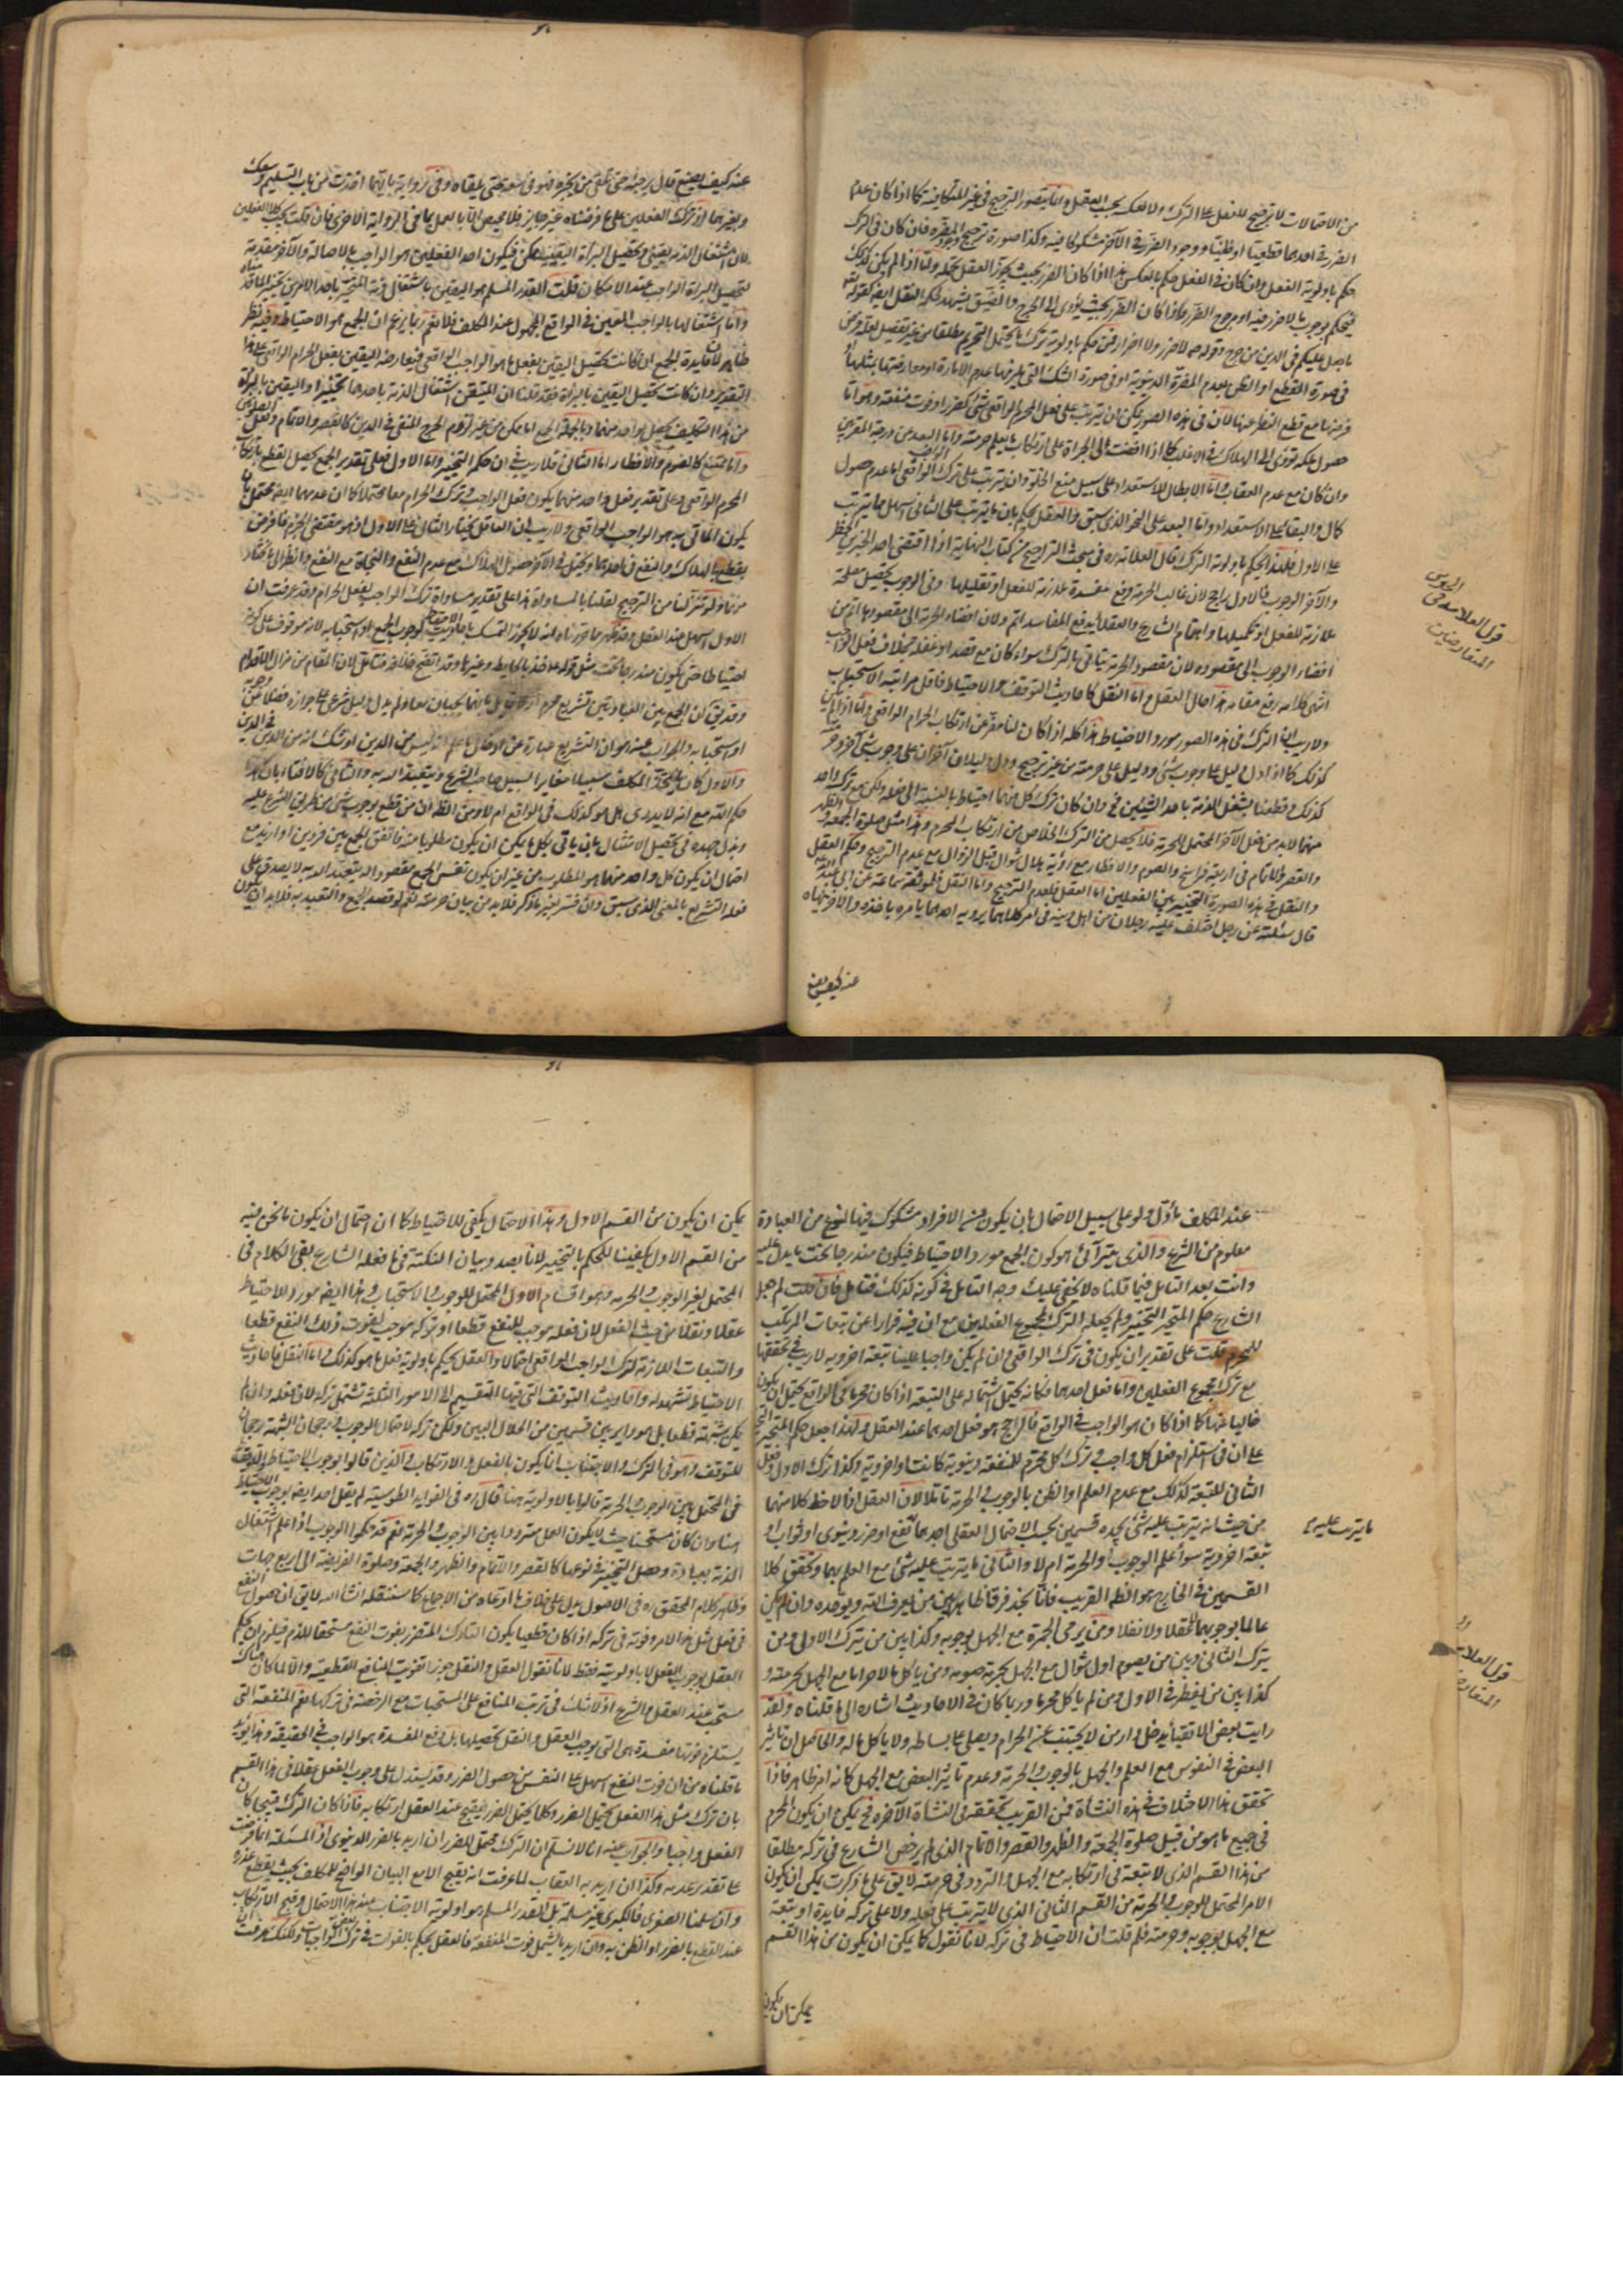 من الاحتمالات لا ترجيح للفعل على الترك ولا للعكس بحسب العقل وانما يتصور الترجيح في غير المتكافئة كما اذا كان عدم
الضرر في احدهما قطعيا او ظنيا ووجود الضرر في الآخر مشكوكا فيه وكذا صورة ترجيح وجود المضرة فان كان في الترك
حكم باولوية الفعل وان كان في الفعل حكم بالعكس هذا اذا كان الضرر بحيث يجوز العقل تحمله واما اذا لم يكن كذلك
فيحكم بوجوب ما لا ضرر فيه او مرجوح الضرر وكذا اذا كان الضرر بحيث يؤدى الى الحرج والضيق يشهد بحكمه النقل ايضا كقوله تعالى
ما جعل عليكم في الدين من حرج وقوله لا ضرر ولا اضرار فمن حكم باولوية ترك ما يحتمل التحريم مطلقا من غير تفصيل
في صورة القطع او الظن بعدم المضرة الدنيوية او في صورة الشك التي يلزمها عدم الامارة او معارضتها بمثلها
فرضها مع قطع النظر عنها لان في هذه الصور يمكن ان يترتب على فعل المحرم الواقعي شئ كضرر او فوت منفعة وهو اما
حصول ملكة تؤدى الى الهلاك في الاغلب كما اذا افضت الى الجرأة على ارتكاب ما يعلم حرمته واما البعد عن درجة المقربين
وان كان مع عدم العقاب واما الابطال للاستعداد على سبيل منع الخلو وان يترتب على ترك الواجب الواقعي اما عدم حصول
كمال والبقاء على الاستعداد واما البعد على النحو الذي سبق والعقل يحكم بان ما يترتب على الثاني اسهل مما يترتب
على الاول فلهذا يحكم باولوية الترك قال العلامة ره في مبحث التراجيح من كتاب النهاية اذا اقتضى احد الخبرين الحظر
والآخر الوجوب فالاول راجح لان غالب الحرمة دفع مفسدة ملازمة للفعل او تقليلها وفي الوجوب تحصيل مصلحة
ملازمة للفعل او تكميلها واهتمام الشارع والعقلاء بدفع المفاسد اتم ولان افضاء الحرمة الى مقصودها اتم من
افضاء الوجوب الى مقصوده لان مقصود الحرمة يتأتى بالترك سواء كان مع قصد او غفلة بخلاف فعل الواجب
انتهى كلامه رفع مقامه هذا حال العقل واما النقل كاحاديث التوقف والاحتياط فاقل مراتبه الاستحباب
ولا ريب ان الترك في هذه الصور مورد الاحتياط هذا كله اذا كان لنا مفر عن ارتكاب الحرام الواقعي واما اذا لم يكن
كذلك كما اذا دل دليل على وجوب شئ ودليل على حرمته من غير ترجيح ودل دليلان آخران على وجوب شئ آخر وحرمته
كذلك وقطعنا بشغل الذمة باحد الشيئين وان كان ترك كل منهما احتياطا بالنسبة الى فعله ولكن مع ترك واحد
منهما لا بد من فعل الآخر المحتمل للحرمة فلا يحصل من الترك الخلاص من ارتكاب المحرم وهذا مثل صلوة الجمعة والظهر
والقصر والاتمام في اربعة فراسخ والصوم والافطار مع رؤية هلال شوال قبل الزوال مع عدم الترجيح وحكم العقل
والنقل في هذه الصورة التخيير بين الفعلين اما العقل فلعدم الترجيح واما النقل فلموثقة سماعة عن ابي عبد الله
قال سئلته عن رجل اختلف عليه رجلان من اهل دينه في امر كلاهما يرويه احدهما يامره باخذه والآخر ينهاه
عنه كيف يصنع
قول العلامة في
المتعارضين
عنه كيف يصنع قال يرجئه حتى يلقى من يخبره فهو في سعة حتى يلقاه وفي رواية بايهما اخذت من باب التسليم وسعك
وبغيرهما اذ ترك الفعلين على ما فرضناه غير جايز فلا محيص الا بالعمل بما في الرواية الاخرى فان قلت يجب كلا الفعلين
لان اشتغال الذمة يقيني وتحصيل البرائة اليقينية ممكن فيكون احد الفعلين هو الواجب بالاصالة والآخر مقدمة
لتحصيل البرائة الواجب عند الامكان قلت القدر المسلم هو اليقين باشتغال ذمة المتحير باحد الامرين تخييرا
واما اشتغالها بالواجب المعين في الواقع المجهول عند المكلف فلا نعم ربما يزعم ان الجمع هو الاحتياط وفيه نظر
ظاهر لان فايدة الجمع ان كانت تحصيل اليقين بفعل ما هو الواجب الواقعي فيعارضه اليقين بفعل الحرام الواقعي على هذا
التقدير وان كانت تحصيل اليقين بالبرائة فقد قلنا ان المتيقن اشتغال الذمة باحدهما تخييرا واليقين بالبرائة
من هذا التكليف يحصل بواحد منهما وبالجملة الجمع اما ممكن من غير لزوم الحرج المنفى في الدين كالقصر والاتمام
واما ممتنع كالصوم والافطار اما الثاني فلا ريب في ان حكم التخيير واما الاول فعلى تقدير الجمع يحصل القطع بارتكاب
المحرم الواقعي وعلى تقدير فعل واحد منهما يكون فعل الواجب وترك الحرام معا محتملا كما ان عدمهما ايضا محتمل بان
يكون الماتي به هو الواجب الواقعي ولا ريب ان العاقل يختار الثاني على الاول اذ هو مقتضى الحزم
يقطع بالهلاك والنفع في احدهما ويحتمل في الآخر حصول الهلاك مع عدم النفع والنجاة مع النفع
ولو تنزلنا من الترجيح لقلنا بالمساواة هذا على تقدير مساواة ترك الواجب لفعل الحرام وقد عرفت ان
الاول اسهل عند العقل وقد ظهر مما قررناه انه لا يجوز التمسك باحاديث الاحتياط لوجوب الجمع او استحبابه لانه موقوف على كونه
احتياطا حتى يكون مندرجا تحت مثل قوله ع فخذ بالحايط وغيرها وقد اتضح خلافه فتامل لان المقام من مزال الاقدام
والاول كان يحدث المكلف سبيلا مغايرا لسبيل صاحب الشرع ويتعبد الله به والثاني كالافتاء بان هذا
حكم الله مع انه لا يدرى هل هو كذلك في الواقع ام لا ومن الظاهر ان من قطع بوجوب شئ من طريق الشرع عليه
وبذل جهده في تحصيل الامتثال بان ياتي بكل ما يمكن ان يكون مطلوبا منه فاتفق الجمع بين فردين او ازيد مع
احتمال ان يكون كل واحد منهما هو المطلوب من غير ان يكون نفس الجمع مقصودا له يتعبد الله به لا يصدق على
فعله التشريع بالمعنى الذي سبق وان فسر بغير ما ذكر فلا بد من بيان حرمته نعم لو قصد الجمع والتعبد به فلا بد ان يكون
عند المكلف ماؤل ولو على سبيل الاحتمال بان يكون من الافراد مشكوك فيها لنوع من العبادة
معلوم من الشرع والذي يترائى هو كون الجمع مورد الاحتياط فيكون مندرجا تحت ما يدل عليه
وانت بعد التامل فيما قلناه لا يخفى عليك وجه التامل في كونه كذلك فتامل فان قلت لم جعل
الشارع حكم المتحير التخيير ولم يجعله الترك لمجموع الفعلين مع ان فيه فرارا عن تبعات المرتكب
للمحرم قلت على تقدير ان يكون في ترك الواقعي وان لم يكن واجبا علينا تبعة اخروية لا ريب في تحققها
مع ترك مجموع الفعلين واما فعل احدهما فكانه يحتمل اشتماله على التبعة اذا كان محرما في الواقع يحتمل ان يكون
خاليا عنها كما اذا كان هو الواجب في الواقع فالراجح هو فعل احدهما عند العقل ولهذا جعل حكم المتحير التخيير
على ان في استلزام فعل كل واجب وترك كل محرم للمنفعة دنيوية كانت او اخروية وكذا ترك الاول وفعل
الثاني للتبعة كذلك مع عدم العلم او الظن بالوجوب والحرمة تاملا لان العقل اذا لاحظ كلا منهما
من حيث انه يترتب عليه شئ يجده قسمين بحسب الاحتمال العقلي احدهما نفع او ضرر دنيوى او ثواب او
تبعة اخروية سواء علم الوجوب او الحرمة ام لا والثاني ما يترتب عليه شئ مع العلم بهما وتحقق كلا
القسمين في الخارج هو الظاهر القريب فانا نجد فرقا ظاهرا بين من يعرف الله ويوحده وان لم يكن
عالما بوجوبهما عقلا ولا نقلا ومن يرمى الجمرة مع الجهل بوجوبه وكذا بين من يترك الاول ومن
يترك الثاني وبين من يصوم اول شوال مع الجهل بحرمة صومه ومن ياكل مالا حراما مع الجهل بحرمته و
كذا بين من يفطر في الاول ومن لم ياكل محرما وربما كان في الاحاديث اشارة الى ما قلناه ولقد
رايت بعض الاتقياء يدخل دار من لا يجتنب عن الحرام ويصلى على بساطه ولا ياكل ماله والحاصل ان تاثير
البعض في النفوس مع العلم والجهل بالوجوب والحرمة وعدم تاثير البعض مع الجهل كانه امر ظاهر فاذا
تحقق هذا الاختلاف في هذه النشأة فمن القريب تحققه في النشأة الآخرة فح يمكن ان يكون المحرم
في جميع ما هو من قبيل صلوة الجمعة والظهر والقصر والاتمام الذي لم يرخص الشارع في تركه مطلقا
من هذا القسم الذي لا تبعة في ارتكابه مع الجهل والتردد في حرمته لا يق على ما ذكرت يمكن ان يكون
الامر المحتمل للوجوب والحرمة من القسم الثاني الذي لا يترتب على فعله ولا على تركه فايدة او تبعة
مع الجهل بوجوبه وحرمته فلم قلت ان الاحتياط في تركه لانا نقول كما يمكن ان يكون من هذا القسم
يمكن ان يكون
ما يترتب عليه
قول العلامة
يمكن ان يكون من القسم الاول وهذا الاحتمال يكفى للاحتياط كما ان احتمال ان يكون ما نحن فيه
من القسم الاول يكفينا للحكم بالتخيير لانا بصدد بيان النكتة فيما فعله الشارع بقى الكلام في
المحتمل لغير الوجوب والحرمة وهو اقسام الاول المحتمل للوجوب والاستحباب وهذا ايضا مورد للاحتياط
عقلا ونقلا من حيث الفعل لان فعله موجب للنفع قطعا او تركه موجب لفوت ذلك النفع قطعا
والتبعات اللازمة لترك الواجب الواقعي احتمالا والعقل يحكم باولوية فعل ما هو كذلك واما النقل فاحاديث
الاحتياط تشهد له واحاديث التوقف التي فيها التقسيم الى الامور الثلثة تشتمل تركه لان فعله وان لم
يكن شبهة قطعا بل هو داير بين قسمين من الحلال البين ولكن تركه لاحتمال الوجوب
للتوقف وهو في الترك والاجتناب انما يكون بالفعل والارتكاب والذين قالوا بوجوب الاحتياط والتوقف
في المحتمل بين الوجوب والحرمة قالوا بالاولوية هنا قال ره في الفوايد الطوسية لم يقل احد ايضا بوجوب الاحتياط
هنا وان كان مستحبا حيث لا يكون العمل مترددا بين الوجوب والحرمة نعم قد حكموا الوجوب اذا علم اشتغال
الذمة بعبادة وحصل التخيير في نوعها كالقصر والاتمام والظهر والجمعة وصلوة الفريضة الى اربع جهات
وظاهر كلام المحقق ره في الاصول يدل على خلاف ما ادعاه من الاجماع كما سننقله انشاء الله لا يق ان حصول النفع
في فعل مثل هذا الامر وفوته في تركه اذا كان قطعيا يكون التارك المتضرر بفوت النفع مستحقا للذم فيلزم ان يحكم
العقل بوجوب الفعل لا باولويته فقط لانا نقول العقل والنقل جوزا تفويت المنافع القطعية والا لما كان هناك
مستحب عند العقل والشرع اذ لا شك في ترتب المنافع على المستحبات مع الرخصة في تركها نعم المنفعة التي
يستلزم فوتها مفسدة هي التي يوجب العقل والنقل تحصيلها بل دفع المفسدة هو الواجب في الحقيقة وهذا يؤيد
ما قلناه من ان فوت النفع اسهل على النفس من حصول الضرر وقد يستدل على وجوب الفعل عقلا في هذا القسم
بان ترك مثل هذا الفعل يحتمل الضرر وكلما يحتمل الضرر يقبح عند العقل ارتكابه فاذا كان الترك قبيحا كان
الفعل واجبا والجواب عنه انا لا نسلم ان الترك محتمل للضرر ان اريد بالضرر الدنيوى اذ المسئلة انما فرضت
على تقدير عدمه وكذا ان اريد به العقاب لما عرفت انه يقبح الا مع البيان الواضح للمكلف بحيث يقطع عذره
وان سلمنا الصغرى فالكبرى غير مسلمة بل القدر المسلم هو اولوية الاجتناب عند هذا الاحتمال وقبح الارتكاب
عند القطع بالضرر او الظن به وان اريد ما يشمل فوت المنفعة فالعقل يحكم بالفوت في ترك بعض الواجبات ولكنك عرفت